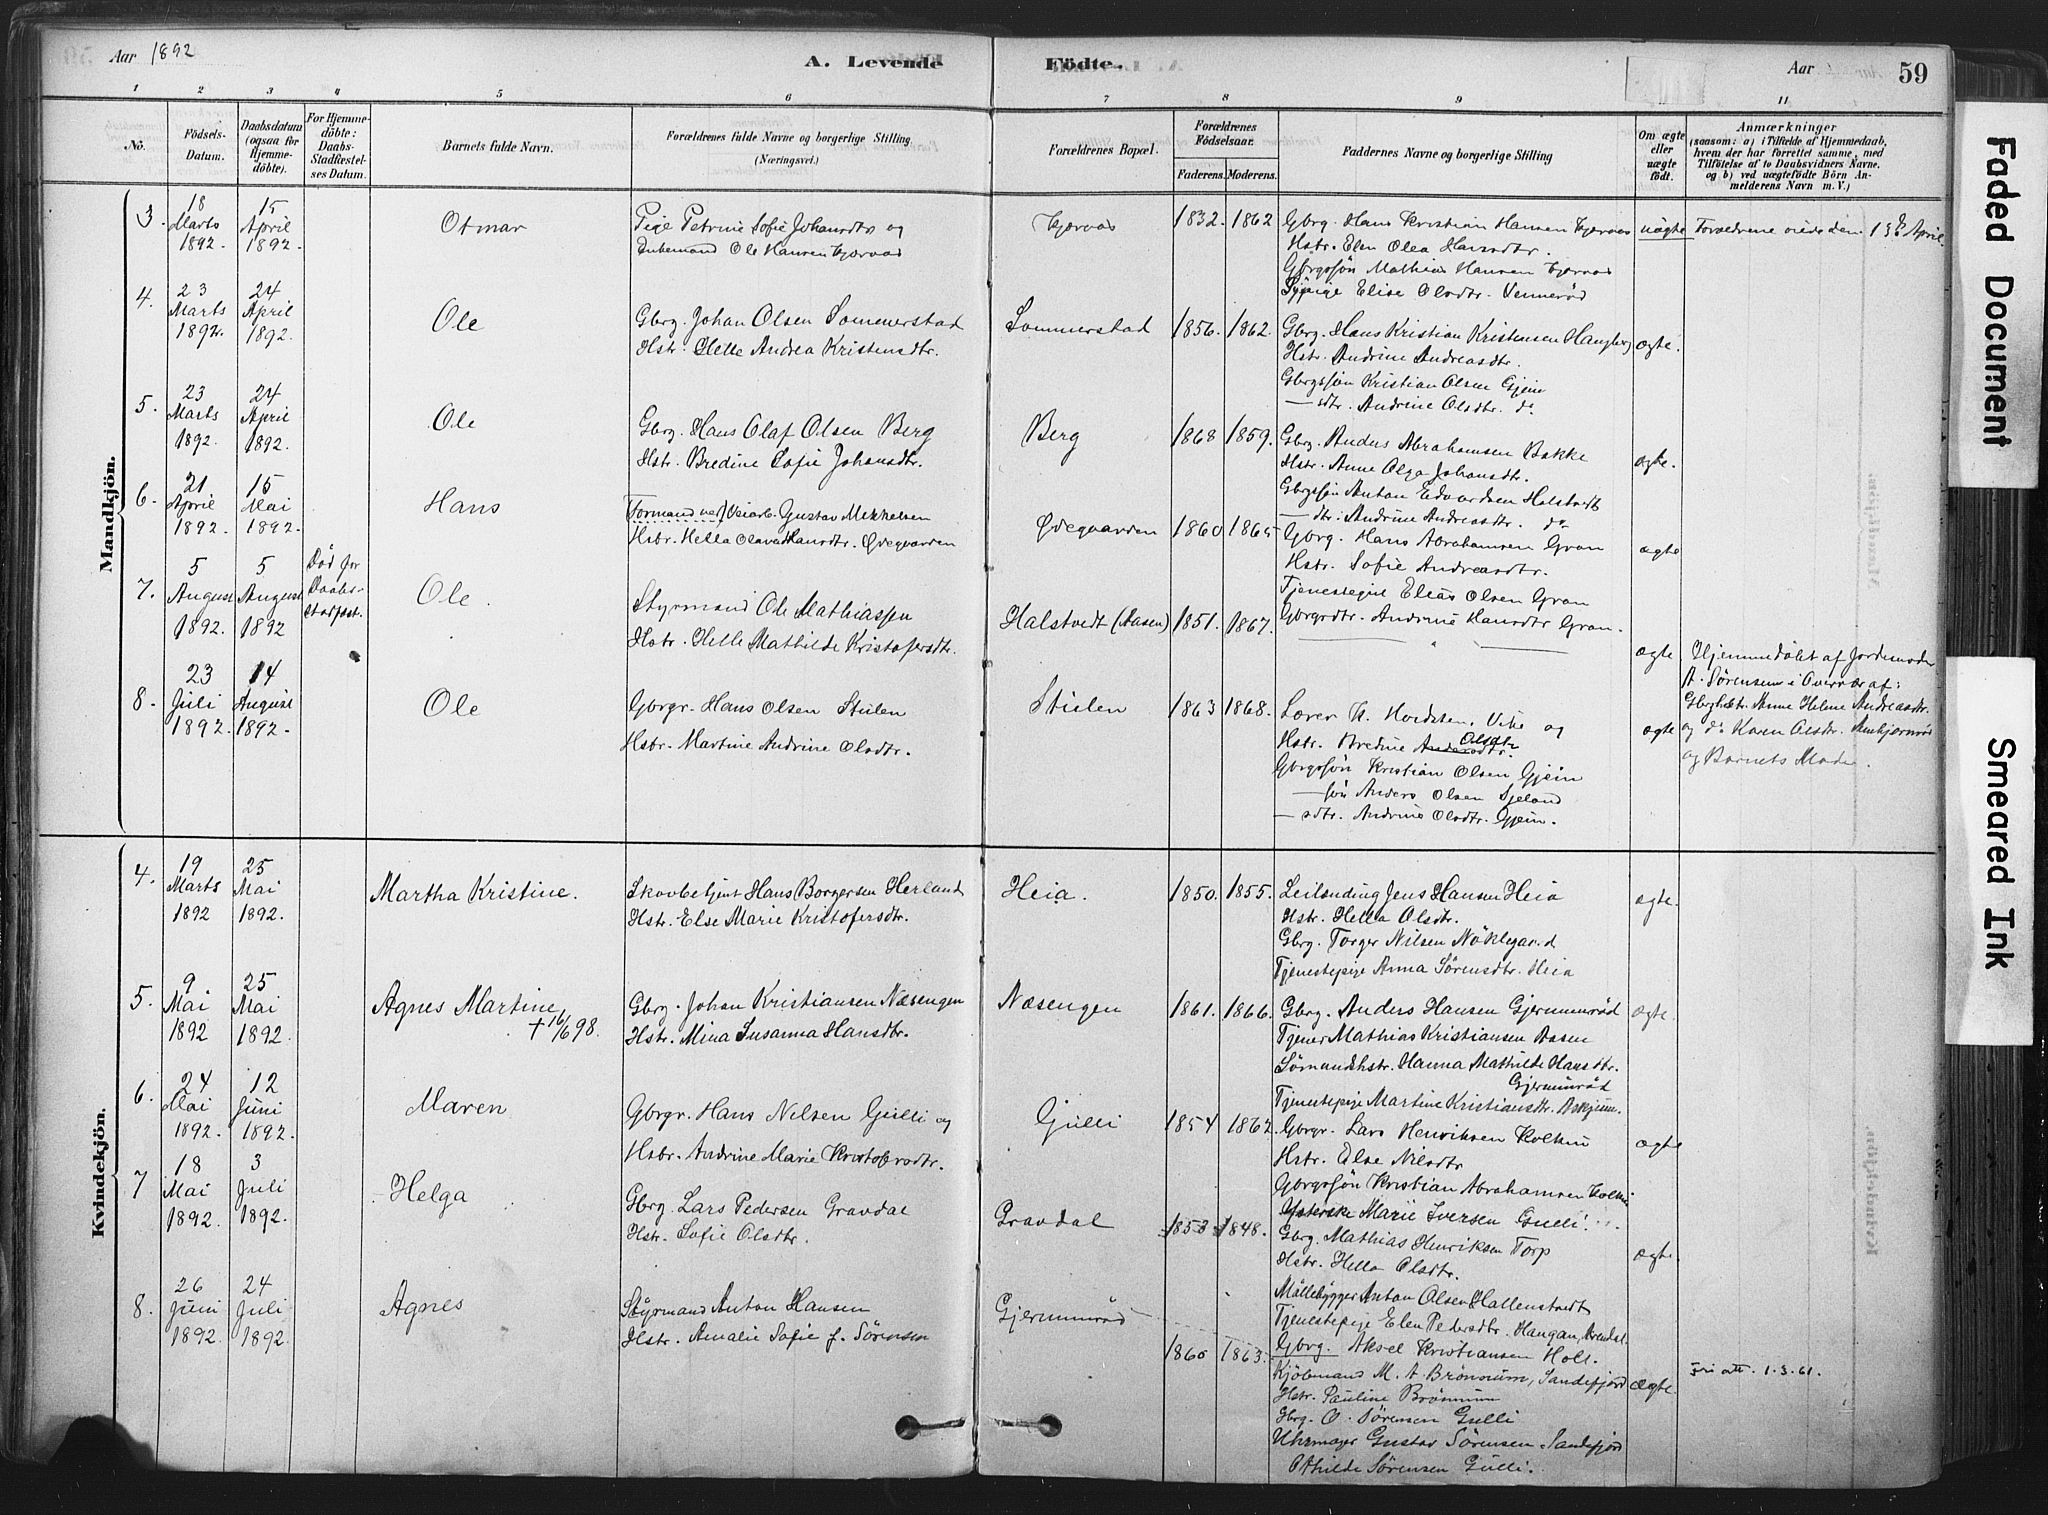 Aar 1892
A. Levende
Födte.
Aar
59
1
2
3
4
5
6
7
8
9
10
11
No.
Födsels-
Datum.
Daabsdatum
(ogsaa for
Hjemme-
döbte).
For Hjemme-
döbte:
Daabs-
Stadfæstel-
ses Datum.
Barnets fulde Navn.
Forældrenes fulde Navne og borgerlige Stilling
(Næringsvei.)
Forældrenes Bopæl.
Forældrenes
Födselsaar.
Faderens. Moderens.
Faddernes Navne og borgerlige Stilling
Om ægte
eller
uægte
födt.
Anmærkninger
(saasom: a) i Tilfælde af Hjemmedaab,
hvem der har forrettet samme, med
Tilföielse af to Daabsvidners Navne.
og b) ved uægtefödte Börn An-
melderens Navn m. V.)
Mandkjön.
3.
18
Marts
1892.
15
April
1892.
Otmar
Pige Petrine Sofie Johansdtr og
Enkemand Ole Hansen
1832. 1862
Gbrg. Hans Kristian Hansen
Hstr. Elen Olea Hansdtr.
Gbrgssön Mathias Hansen
Sypige Elise Olsdtr. Vennerød
uægte
Forældrene viede den 13de April.
4.
23
Marts
1892.
24
April
1892.
Ole
Gbrg. Johan Olsen Sommerstad
Hstr. Helle Andrea Kristensdtr.
Sommerstad
1856. 1862.
Gbrg. Hans Kristian Kristensen Haugberg
Hstr. Andrine Andreasdtr.
Gbrgssön Kristian Olsen Gjein
—sdtr. Andrine Olsdtr. do
ægte.
5.
23
Marts
1892.
24
April
1892.
Ole
Gbrg. Hans Olaf Olsen Berg
Hstr. Bredine Sofie Johansdtr.
Berg
1868 1859.
Gbrg. Anders Abrahamsen Bakke
Hstr. Anne Olga Johansdtr.
Gbrgssön Anton Edvardsen Halstvedt
—dtr. Andrine Andreasdtr. do
ægte.
6.
21
April
1892.
15
Mai
1892.
Hans
Formand ved Veiarb. Gustav Mikkelsen
Hstr. Hella Olava Hansdtr. Ødegaarden
Ødegaarden
1860 1865
Gbrg. Hans Abrahamsen Gran
Hstr. Sofie Andreasdtr.
Tjenestegut Elias Olsen Gran
Gbrgrdtr. Andrine Hansdtr Gran.
ægte
7.
5
August
1892.
5
August
1892
Død før
Daabs-
stadfæst.
Ole.
Styrmand Ole Mathiassen
Hstr. Helle Mathilde Kristofersdtr.
Halstvedt (Aasen)
1851. 1867.
— " —
ægte
Hjemmedøbt af Jordemoder
A. Sørensen i Overvær af:
Gbrghstr. Anne Helene Andreasdtr.
og do Karen Olsdtr.
og Barnets Moder.
8.
23
Juli
1892.
14
August
1892.
Ole
Gbrgr. Hans Olsen Stulen
Hstr. Martine Andrine Olsdtr.
Stulen
1863 1868.
Lærer H. Hordsten, Vike og
Hstr. Bredine Andersdtr. Olsdtr
Gbrgssön Kristian Olsen Gjein
—søn Anders Olsen Sjeland
—sdtr. Andrine Olsdtr. Gjein.
ægte
Kvindekjön.
4.
19
Marts
1892
25
Mai
1892.
Martha Kristine.
Skovbetjent Hans Borgersen Herland
Hstr. Else Marie Kristofersdtr.
Heia.
1850. 1855.
Leilending Jens Hansen Heia
Hstr. Hella Olsdtr.
Gbrg. Torger Nilsen Nöklegard
Tjenestepige Anna Sörensdtr. Heia
ægte.
5.
9
Mai
1892
25
Mai
1892.
Agnes Martine
† 16/6 98.
Gbrg. Johan Kristiansen Næsengen
Hstr. Mina Susanna Hansdtr.
Næsengen
1861. 1866.
Gbrg. Anders Hansen Gjermunrød
Tjener Mathias Kristiansen Aasen
Sömandshstr. Hanna Mathilde Hansdtr.
Gjermunrød
Tjenestepige Martine Kristiansdtr. Askjum.
ægte.
6.
24
Mai
1892.
12
Juni
1892.
Maren
Gbrgr. Hans Nilsen Gulli og
Hstr. Andrine Marie Kristofersdtr.
Gulli
1854 1862.
Gbrgr. Lars Henriksen Kolkin
Hstr. Else Nilsdtr
Gbrgssön Kristian Abrahamsen
Marie Iversen Gulli.
ægte
7
18
Mai
1892.
3
Juli
1892.
Helga
Gbrg. Lars Pedersen Gravdal
Hstr. Sofie Olsdtr.
Gravdal
1853 1848.
Gbrg. Mathias Henriksen Torp
Hstr. Hella Olsdtr.
Möllebygger Anton Olsen Hallenstvedt
Tjenestepige Elen Pedersdtr. Haugan, Arendal.
ægte.
8.
26
Juni
1892.
24
Juli
1892.
Agnes
Styrmand Anton Hansen
Hstr. Amalie Sofie f. Sörensen
Gjermunrød
1860 1863.
Gbrg. Aksel Kristiansen Holt.
Kjöbmand M. A. Brönnum, Sandefjord
Hstr. Pauline Brönnum
Gbrg. O. Sörensen Gulli
Uhrmager Gustav Sörensen, Sandefjord
Othilde Sörensen Gulli.
ægte.
Fri att. 1.3.61.
Faded Document
Smeared Ink